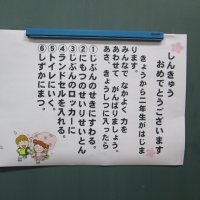 しんきゅう
おめでとうございます
きょうから二年生がはじま
ります。
みんなで なかよく 力を
あわせて がんばりましょう。
あさ、きょうしつに入ったら
①じぶんのせきにすわる。
②にもつのせいりせいとん
③じぶんのロッカーに
④ランドセルを入れる。
⑤トイレにいく。
⑥しずかにまつ。